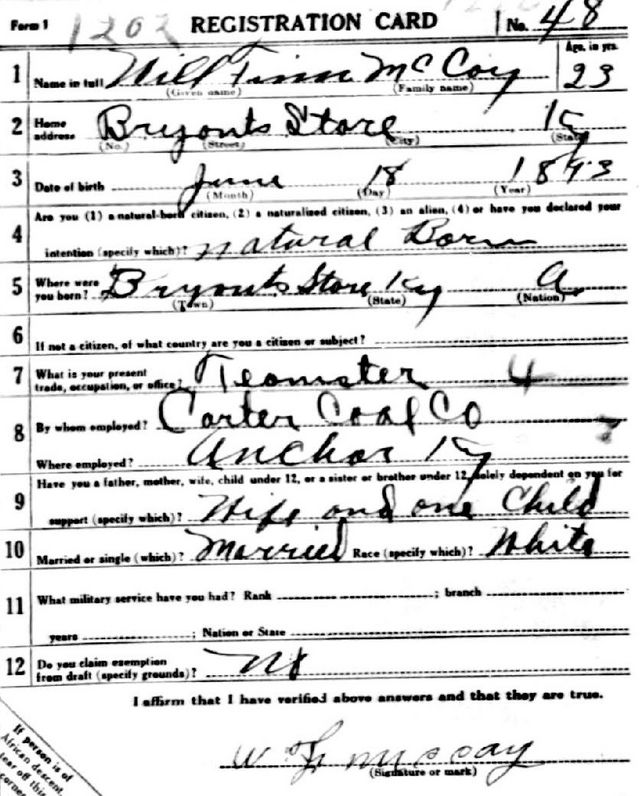 Form 1 1202 REGISTRATION CARD No. 48
1 Name in full Will McCoy Age, in yrs. 23
(Given name) (Family name)
2 Home address Bryonts Store Ky
(No.) (Street) (City) (State)
3 Date of birth June 18 1893
(Month) (Day) (Year)
Are you (1) a natural-born citizen, (2) a naturalized citizen, (3) an alien, (4) or have you declared your
4 intention (specify which)? Natural Born
5 Where were you born? Bryonts Store Ky A
(Town) (State) (Nation)
6 If not a citizen, of what country are you a citizen or subject?
7 What is your present trade, occupation, or office? Teamster 4
8 By whom employed? Carter Coal Co
Where employed? Anchor Ky
Have you a father, mother, wife, child under 12, or a sister or brother under 12, solely dependent on you for
9 support (specify which)? Wife and one Child
10 Married or single (which)? Married Race (specify which)? White
11 What military service have you had? Rank ; branch
years ; Nation or State
12 Do you claim exemption from draft (specify grounds)? No
I affirm that I have verified above answers and that they are true.
(Signature or mark)
If person is of
African descent,
tear off this
corner